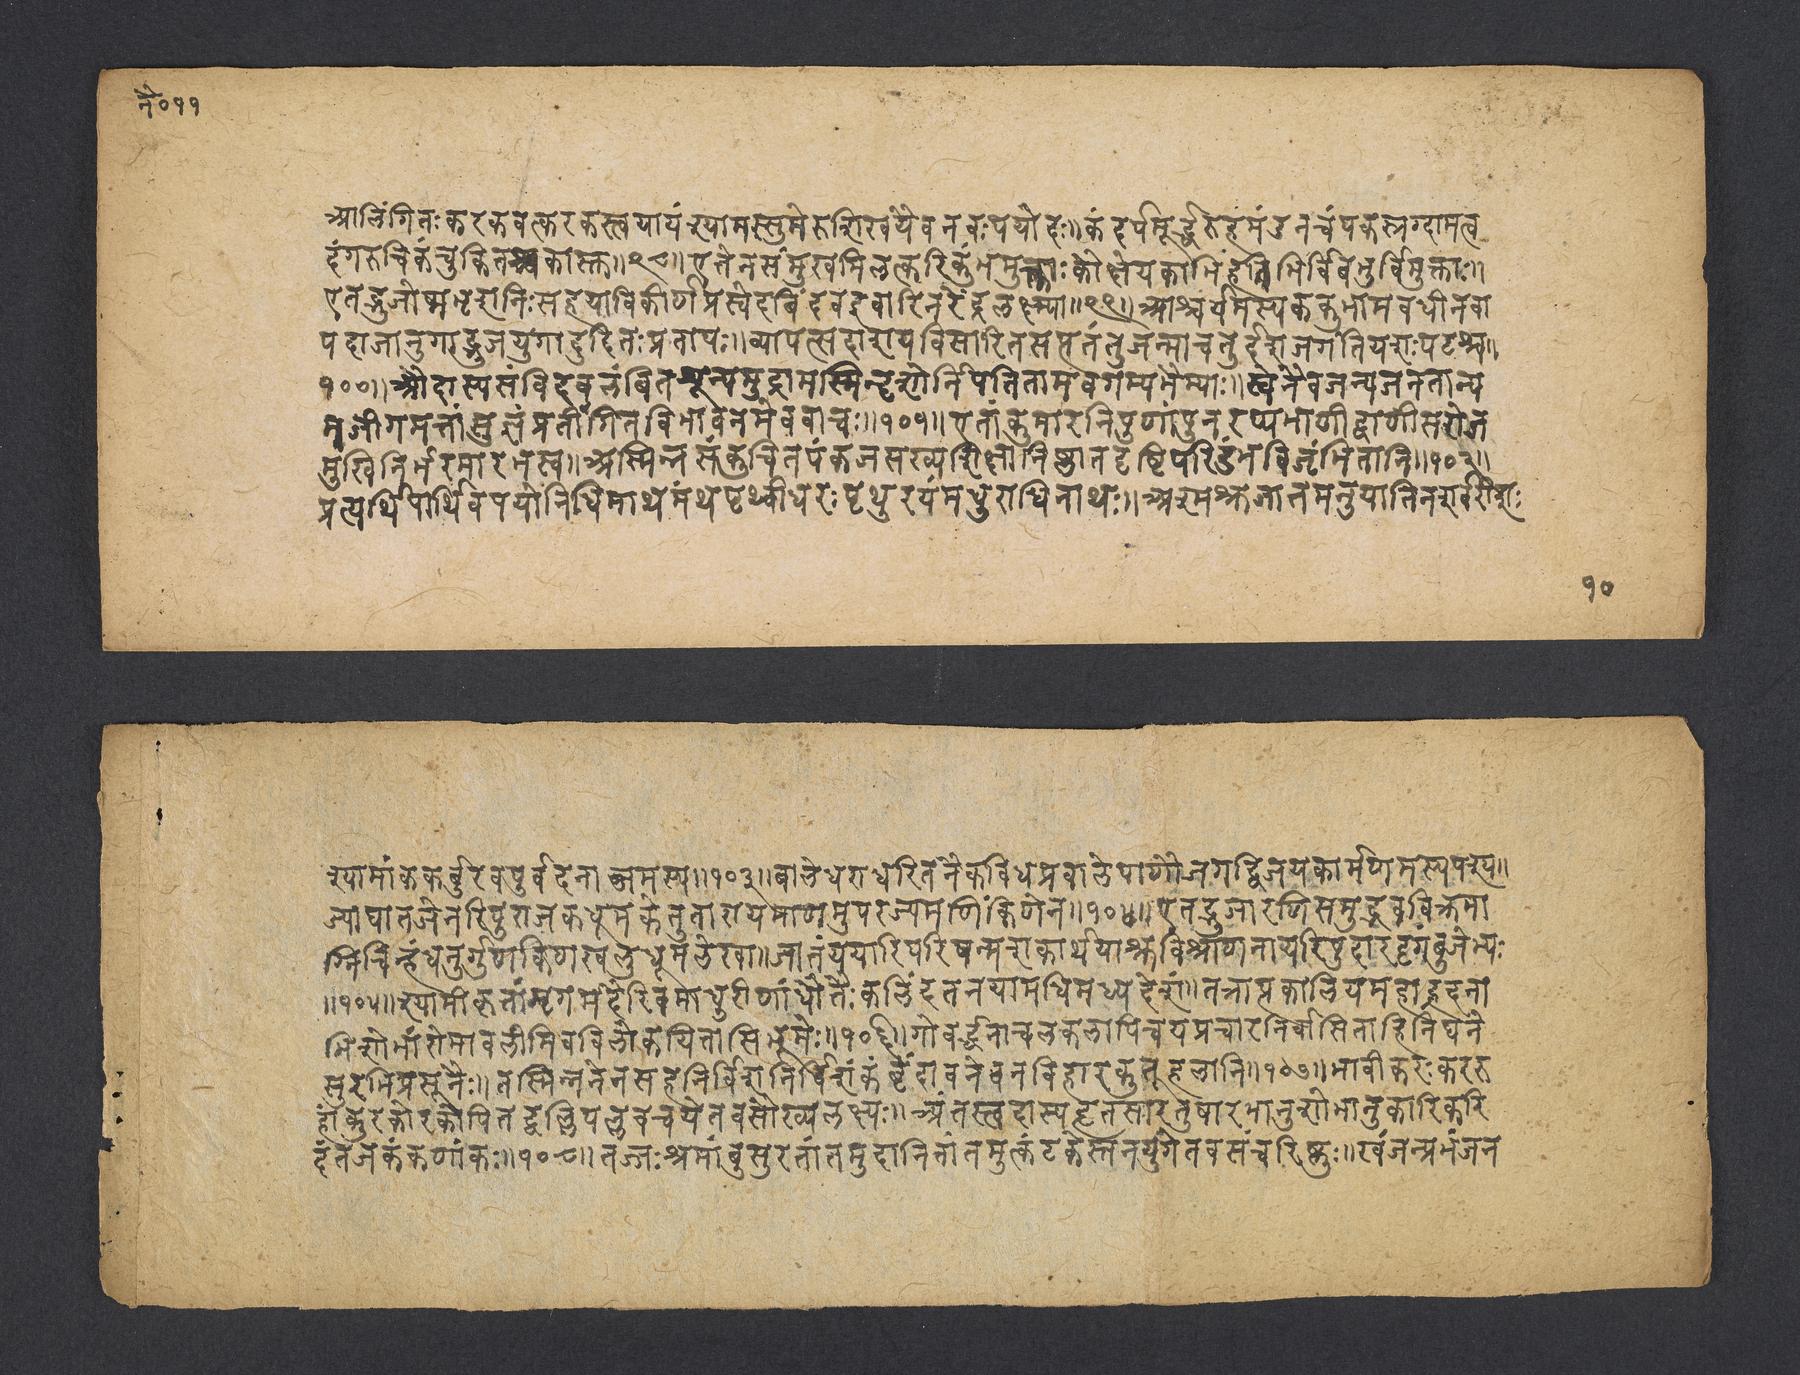 नै०११
आलिंगितः कर कवत्करकस्त्वयायं श्यामस्सुमेरुशिखयेव नवः पयोदः॥ कंदर्पमूर्द्धरुहमंडनचंपकस्रग्दामत्व
दंगरुचिकंचुकितश्चकास्तु॥९८॥ एतेन संमुखमिलत्करिकुंभमुक्ताः कौक्षेयकाभिहतिभिर्विबभुर्विमुक्ताः॥
एतद्भुजोष्मभृशनिःसहयाविकीर्णाः प्रस्वेदबिंदव इवारिनरेंद्रलक्ष्म्या॥९९॥ आश्चर्यमस्य ककुभामवधीनवा
पदाजानुगाद्भुजयुगादुदितः प्रतापः॥ व्यापत्सदाशयविसारितसप्ततंतुजन्माचतुर्दशजगंति यशःपटश्च॥
१००॥ औदास्यसंविदवलंबितशून्यमुद्रामस्मिन्दृशोर्निपतितामवगम्य भैम्याः॥ स्वेनैव जन्यजनतान्य
मजीगमत्तां सुज्ञं प्रतींगितविभावनमेव वाचः॥१०१॥ एतां कुमारनिपुणां पुनरप्यभाणीद्वाणी सरोज
मुखि निर्भरमारभस्व॥ अस्मिन्नसंकुचितपंकजसख्यशिक्षानिष्णातदृष्टिपरिरंभविजृंभितानि॥१०२॥
प्रत्यर्थिपार्थिवपयोनिधिमाथमंथपृथ्वीधरः पृथुरयं मथुराधिनाथः॥ अश्मश्रुजातमनुयाति न शर्वरीशः
१०
श्यामांककर्बुरवपुर्वदनाब्जमस्य॥१०३॥ बालेधराधरितनैकविधप्रवाले पाणौ जगद्विजयकार्मणमस्य पश्य॥
ज्याघातजेन रिपुराजकधूमकेतुतारायमाणमुपरज्य मणिं किणेन॥१०४॥ एतद्भुजारणिसमुद्भवविक्रमा
ग्निचिन्हं धनुर्गुणकिणः खलु धूमलेखा॥ जातं ययारिपरिषन्मशकार्थयाश्रुविश्राणनाय रिपुदारदृगंबुजेभ्यः
॥१०५॥ श्यामीकृतां मृगमदैरिव माथुरीणां धौतैः कलिंदतनयामधिमध्यदेशं॥ तत्राप्तकालियमहाह्रदना
भिशोभां रोमावलीमिव विलोकयितासि भूमेः॥१०६॥ गोवर्द्धनाचलकलापिचयप्रचारनिर्वासिताहिनि घने
सुरभिप्रसूनैः॥ तस्मिन्ननेन सह निर्विश निर्विशंकं वृंदावने वनविहारकुतूहलानि॥१०७॥ भावी करः कररु
हांकुरकोरकोपि तद्वल्लिपल्लवचये तव सौख्यलक्ष्यः॥ अंतस्त्वदास्यहृतसारतुषारभानुशोभानुकारिकरि
दंतजकंकणांकः॥१०८॥ तज्जः श्रमांबुसुरतांतमुदा नितांतमुत्कंटके स्तनयुगे तव संचरिष्णुः॥ खंजन्प्रभंजन